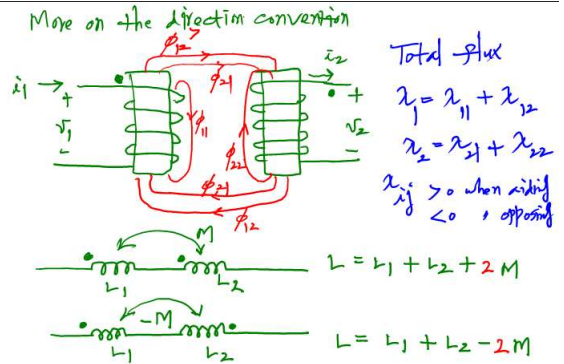 More on the direction convention
ϕ12
i1
ϕ21
i2
+
v1
-
ϕ11
ϕ22
+
v2
-
ϕ21
ϕ12
Total flux
λ1 = λ11 + λ12
λ2 = λ21 + λ22
λij > 0 when aiding
< 0 " opposing
M
L1 L2
L = L1 + L2 + 2M
-M
L1 L2
L = L1 + L2 - 2M